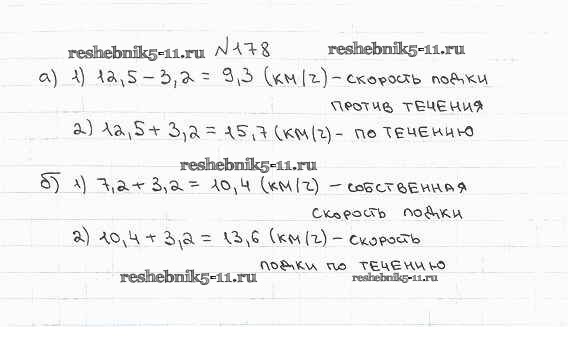 reshebnik5-11.ru №178 reshebnik5-11.ru
а) 1) 12,5 – 3,2 = 9,3 (км/ч) – скорость лодки
против течения
2) 12,5 + 3,2 = 15,7 (км/ч) – по течению
reshebnik5-11.ru
б) 1) 7,2 + 3,2 = 10,4 (км/ч) – собственная
скорость лодки
2) 10,4 + 3,2 = 13,6 (км/ч) – скорость
лодки по течению
reshebnik5-11.ru reshebnik5-11.ru